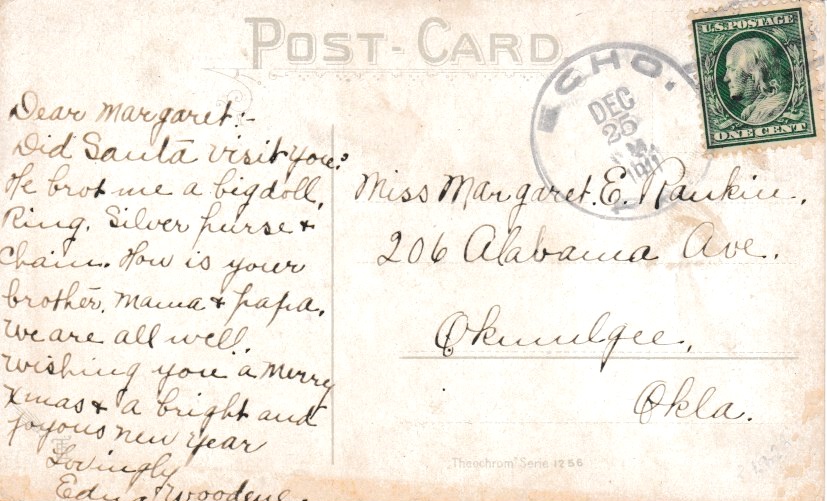 POST-CARD
U.S. POSTAGE
ONE CENT
ECHO,
DEC
25
1911
Dear Margaret:-
Did Santa visit you?
He brot me a big doll,
Ring, Silver purse &
Chain. How is your
brother, Mama & papa.
We are all well.
Wishing you a Merry
Xmas & a bright and
joyous new year
Lovingly
Miss Margaret. E. Rankin.
206 Alabama Ave.
Okmulgee,
Okla.
"Theochrom" Serie 1256